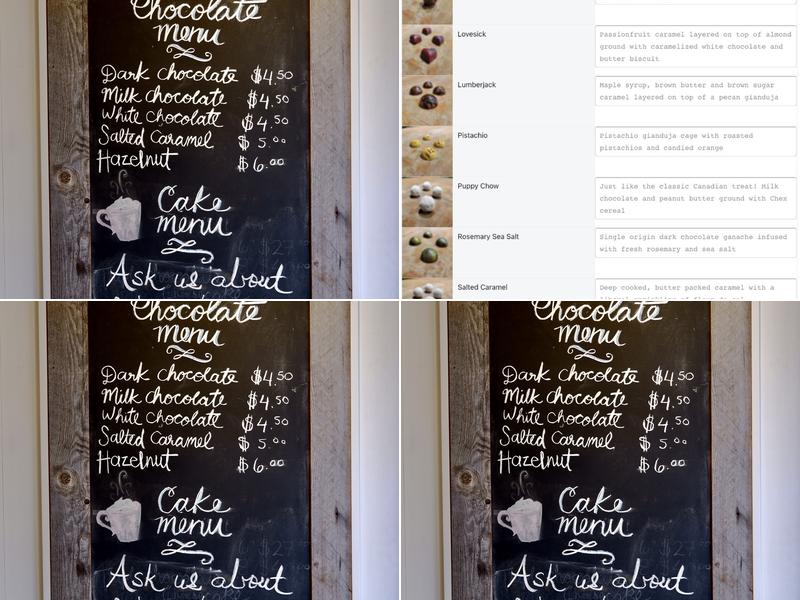 Chocolate
menu
Dark chocolate $4.50
Milk chocolate $4.50
White chocolate $4.50
Salted Caramel $5.00
Hazelnut $6.00
Cake
menu
$27
Ask us about
Lovesick
Passionfruit caramel layered on top of almond
ground with caramelized white chocolate and
butter biscuit
Lumberjack
Maple syrup, brown butter and brown sugar
caramel layered on top of a pecan gianduja
Pistachio
Pistachio gianduja cage with roasted
pistachios and candied orange
Puppy Chow
Just like the classic Canadian treat! Milk
chocolate and peanut butter ground with Chex
cereal
Rosemary Sea Salt
Single origin dark chocolate ganache infused
with fresh rosemary and sea salt
Salted Caramel
Deep cooked, butter packed caramel with a
Chocolate
menu
Dark chocolate $4.50
Milk chocolate $4.50
White chocolate $4.50
Salted Caramel $5.00
Hazelnut $6.00
Cake
menu
$27
Ask us about
Chocolate
menu
Dark chocolate $4.50
Milk chocolate $4.50
White chocolate $4.50
Salted Caramel $5.00
Hazelnut $6.00
Cake
menu
$27
Ask us about